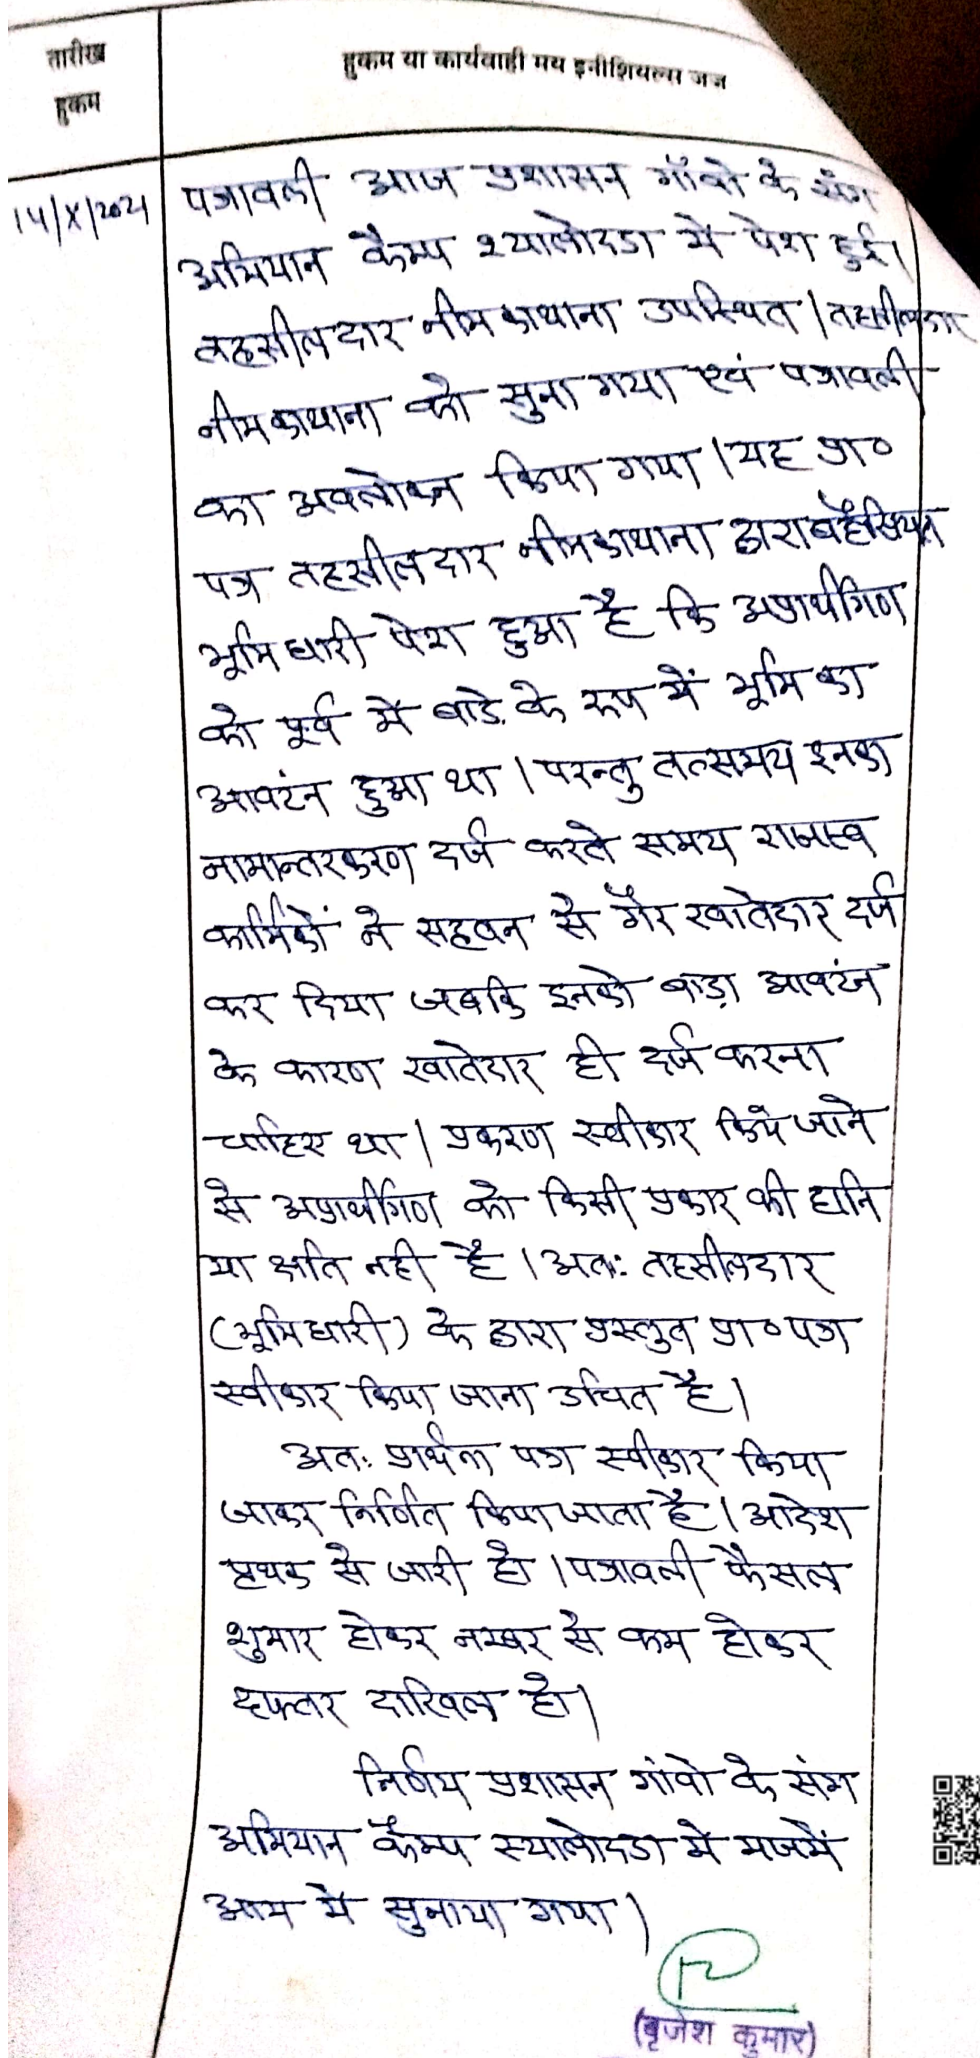 तारीख
हुकम
हुकम या कार्यवाही मय इनीशियल्स जज
14/X/2021
पत्रावली आज प्रशासन गाँवो के संग
अभियान कैम्प श्यालोदडा में पेश हुई।
तहसीलदार नीमकाथाना उपस्थित। तहसीलदार
नीमकाथाना को सुना गया एवं पत्रावली
का अवलोकन किया गया। यह प्रा०
पत्र तहसीलदार नीमकाथाना द्वारा बहैसियत
भूमिधारी पेश हुआ है कि अप्रार्थीगण
को पूर्व में बाडे के रूप में भूमि का
आवटंन हुआ था। परन्तु तत्समय इनका
नामान्तरकरण दर्ज करते समय राजस्व
कार्मिकों ने सहवन से गैर खातेदार दर्ज
कर दिया जबकि इनको बाड़ा आवटंन
के कारण खातेदार ही दर्ज करना
चाहिए था। प्रकरण स्वीकार किये जाने
से अप्रार्थीगण को किसी प्रकार की हानि
या क्षति नही है। अतः तहसीलदार
(भूमिधारी) के द्वारा प्रस्तुत प्रा० पत्र
स्वीकार किया जाना उचित है।
अतः प्रार्थना पत्र स्वीकार किया
जाकर निर्णित किया जाता है। आदेश
पृथक से जारी हो। पत्रावली फैसल
शुमार होकर नम्बर से कम होकर
दफ्तर दाखिल हो।
निर्णय प्रशासन गांवो के संग
अभियान कैम्प स्यालोदडा में मजमें
आम में सुनाया गया।
(बृजेश कुमार)